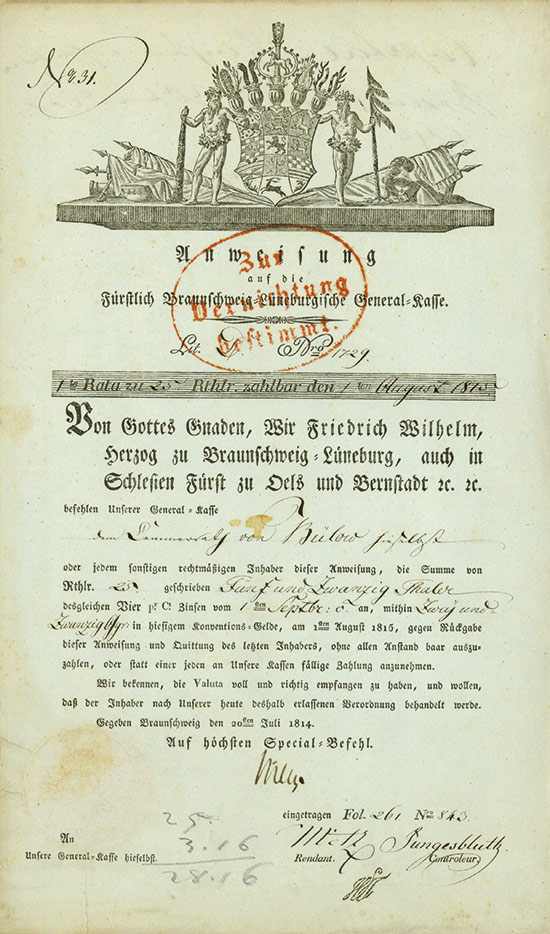 No 31.
Anweisung
auf die
Fürstlich Braunschweig-Lüneburgische General-Kasse.
Zur
Vernichtung
bestimmt.
Lit. Nro 1729.
1te Rata zu 25 Rthlr. zahlbar den 1ten August 1815.
Von Gottes Gnaden, Wir Friedrich Wilhelm,
Herzog zu Braunschweig-Lüneburg, auch in
Schlesien Fürst zu Oels und Bernstadt ꝛc. ꝛc.
befehlen Unserer General-Kasse
dem Cammerrath von Bülow hieselbst
oder jedem sonstigen rechtmäßigen Inhaber dieser Anweisung, die Summe von
Rthlr. 25 geschrieben Fünf und Zwanzig Thaler
desgleichen Vier pr Ct Zinsen vom 1sten Septbr: c. an, mithin Zwey und
Zwanzig ggr. in hiesigem Konventions-Gelde, am 1sten August 1815, gegen Rückgabe
dieser Anweisung und Quittung des letzten Inhabers, ohne allen Anstand baar auszu-
zahlen, oder statt einer jeden an Unsere Kassen fällige Zahlung anzunehmen.
Wir bekennen, die Valuta voll und richtig empfangen zu haben, und wollen,
daß der Inhaber nach Unserer heute deshalb erlassenen Verordnung behandelt werde.
Gegeben Braunschweig den 20sten Juli 1814.
Auf höchsten Special-Befehl.
eingetragen Fol. 261 Nro 843.
25.
3.16
28.16
An
Unsere General-Kasse hieselbst.
Jungesbluth
Rendant. Controleur.